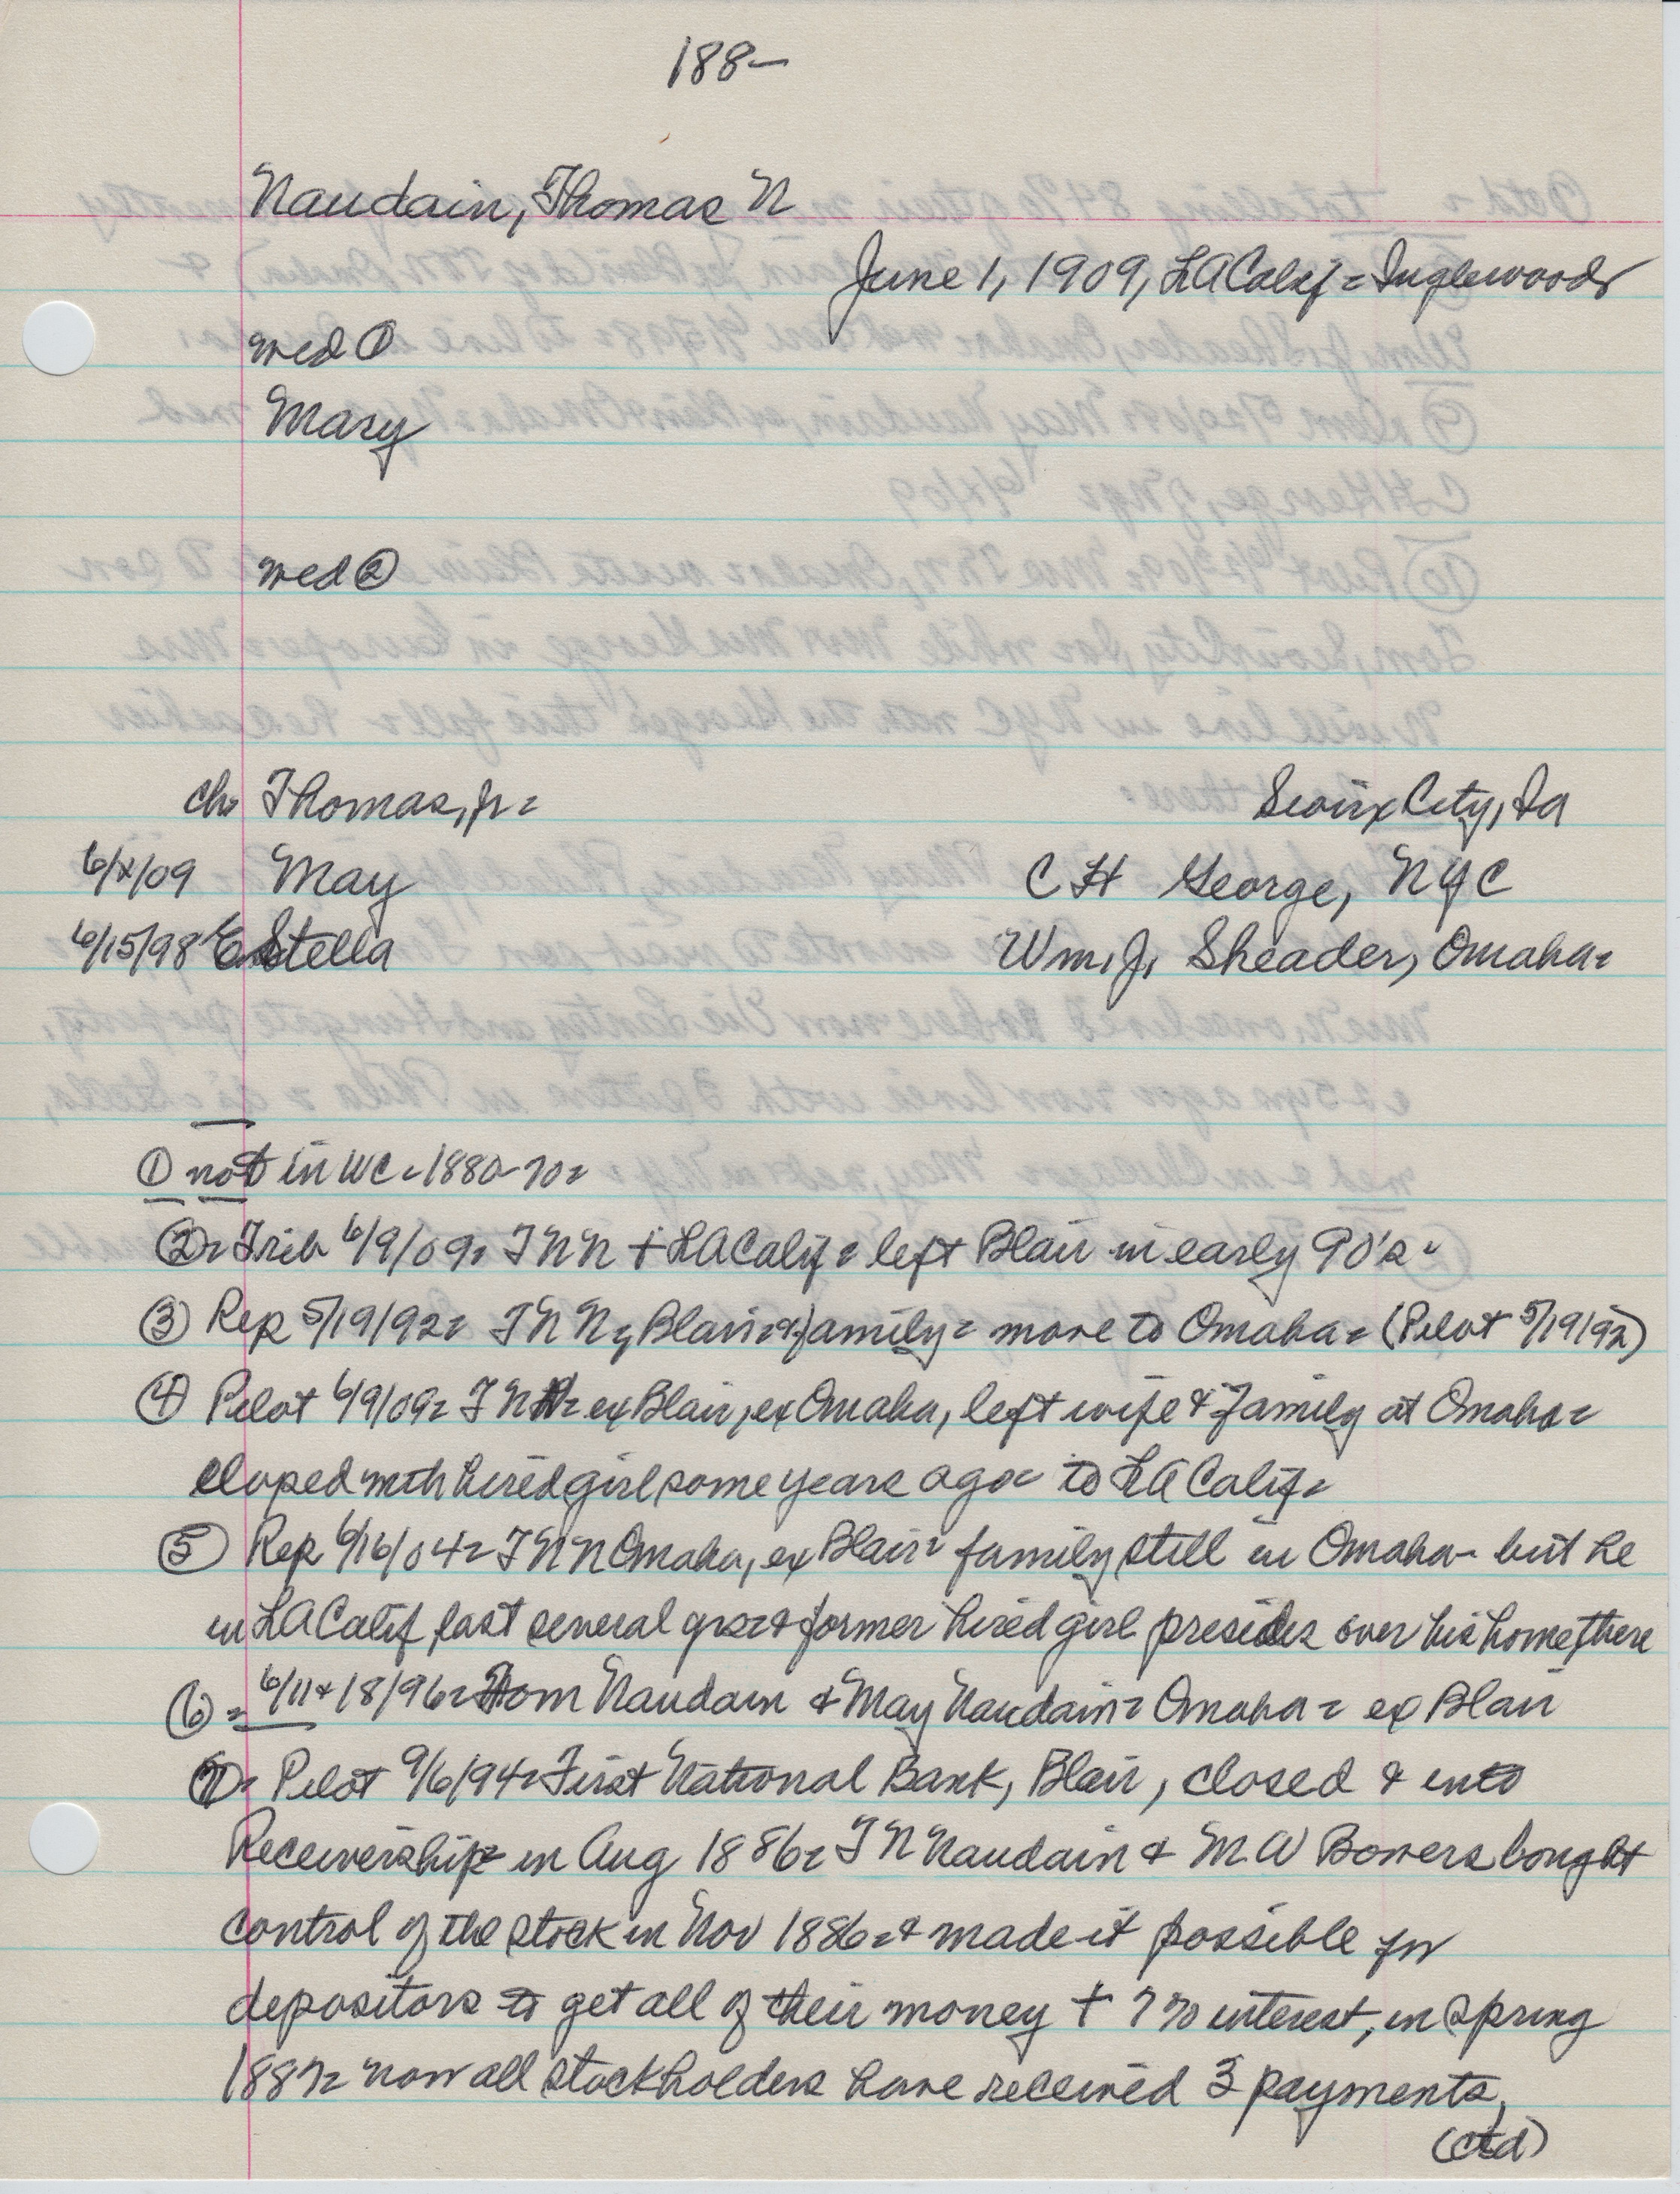 188-
Naudain, Thomas N
June 1, 1909, LA Calif = Inglewood
med ①
Mary
med ②
ch Thomas, Jr = Sioux City, Ia
6/2/09 May C H George, NYC
6/15/98 E Stella Wm. J. Sheader, Omaha =
① not in WC = 1880-70 =
② = Trib 6/9/09 = T N N + LA Calif = left Blair in early 90's =
③ Rep 5/19/92 = T N N, Blair = & family = move to Omaha = (Pilot 5/19/92)
④ Pilot 6/9/09 = T N N = ex Blair, ex Omaha, left wife & family at Omaha =
eloped with hired girl some years ago = to LA Calif =
⑤ Rep 6/16/04 = T N N Omaha, ex Blair = family still in Omaha - but he
in LA Calif last several yrs = & former hired girl presides over his home there
⑥ = 6/11 & 18/96 = Tom Naudain & May Naudain = Omaha = ex Blair
⑦ = Pilot 9/6/94 = First National Bank, Blair, closed & into
Receivership = in Aug 1886 = T N Naudain & M. W Bowers bought
control of the stock in Nov 1886 = & made it possible for
depositors to get all of their money + 7% interest, in spring
1887 = now all stockholders have received 3 payments,
(ctd)